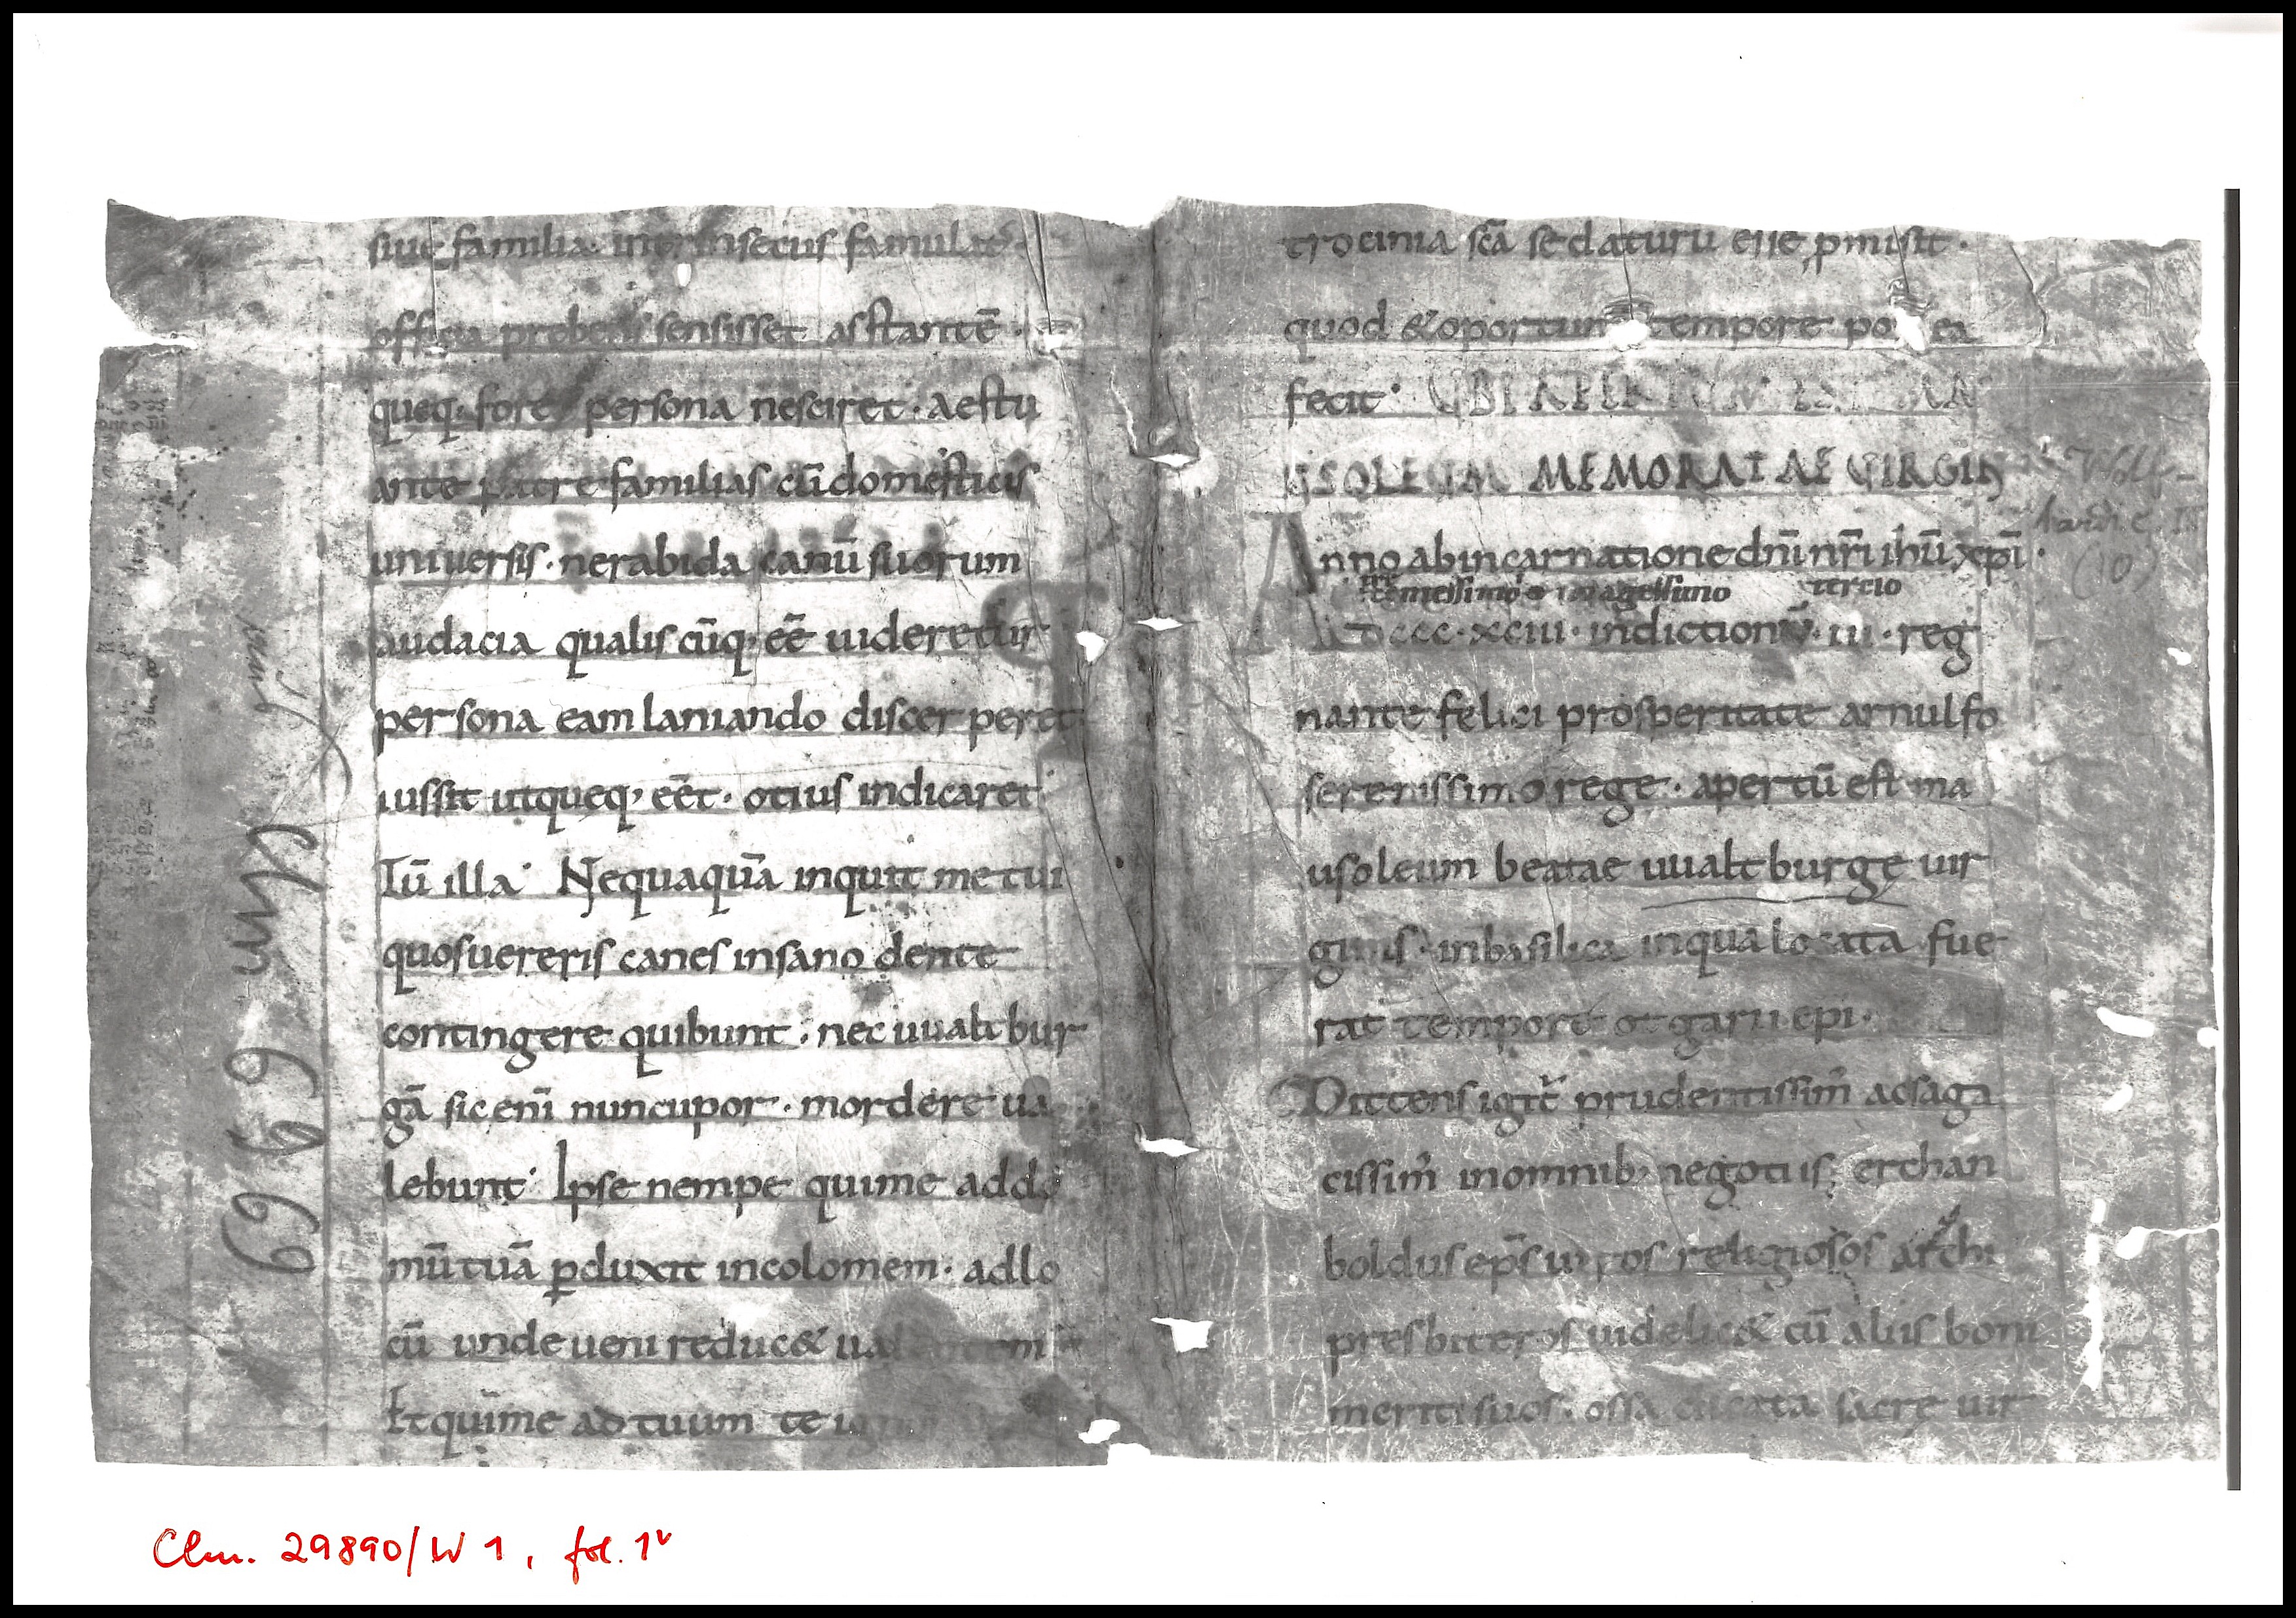 siue familia intrinsecus famulat
officia prebens sensisset astantē·
queq· fore persona nesciret· aestu
ante patre familias cū domesticis
uniuersis· ne rabida canū suorum
audacia qualiscūq· eē uideretur
persona eam laniando discerperet
iussit ut queq· eēt· otius indicaret
Tū illa· Nequaquā inquit me tui
quos uereris canes insano dente
contingere quibunt· nec uualtbur
gā sic eni nuncupor· mordere ua
lebunt· Ipse nempe qui me ad do
mū tuā pduxit incolomem· ad lo
cū unde ueni reduc&
Et qui me ad tuum te
trocinia scā se daturū esse pmisit·
quod & oportuno tempore
fecit· UBI APERTUM EST MA
USOLEUM MEMORATAE VIRGIN
Anno ab incarnatione dnī nrī ihū xpī·
tercio
DCCC·XCIII· indictionū· III· reg
nante felici prosperitate arnulfo
serenissimo rege· apertū est ma
usoleum beatae uualtburge uir
ginis· in basilica in qua locata fue
rat tempore otgarii epi·
Mittens igit prudentissim ac saga
cissim in omnib negotiis; erchan
boldus eps uiros religiosos archi
presbiteros uidelic& cū aliis boni
meriti suos· ossa sacre uir
Clm 6969
Clm. 29890/W 1, fol. 1v